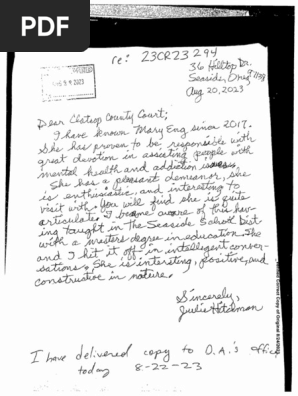 PDF
re: 23CR23294
36 Hilltop Dr.
Seaside, Oreg
Aug 20, 2023
Dear Clatsop County Court;
I have known Mary Eng since 2017.
She has proven to be responsible with
great devotion in assisting people with
mental health and addiction issues.
She has a pleasant demeanor, she
is enthusiastic, and interesting to
visit with. You will find she is quite
articulate. I became aware of this hav-
ing taught in the Seaside School Dist.
with a masters degree in education. She
and I hit it off in intelligent conver-
sations. She is intersting, positive, and
constructive in nature.
Sincerely,
Julie
I have delivered copy to D.A.'s office
today 8-22-23